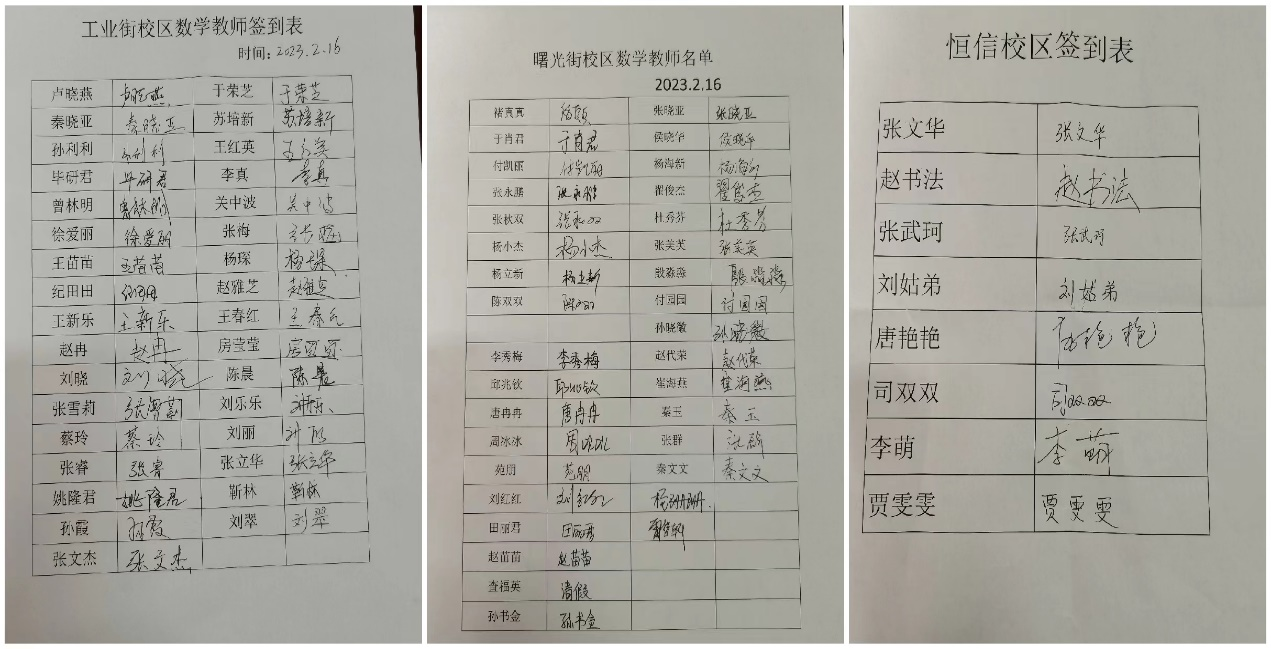 工业街校区数学教师签到表
时间：2023.2.16
卢晓燕 卢晓燕 于荣芝 于荣芝
秦晓亚 秦晓亚 苏培新 苏培新
孙利利 孙利利 王红英 王红英
毕研君 毕研君 李真 李真
曾林明 曾林明 关中波 关中波
徐爱丽 徐爱丽 张海
王苗苗 王苗苗 杨琛 杨琛
纪田田 纪田田 赵雅芝 赵雅芝
王新乐 王新乐 王春红 王春红
赵冉 赵冉 房莹莹 房莹莹
刘晓 刘晓 陈晨 陈晨
张雪莉 张雪莉 刘乐乐 刘乐乐
蔡玲 蔡玲 刘丽 刘丽
张睿 张睿 张立华 张立华
姚隆君 姚隆君 靳林 靳林
孙霞 孙霞 刘翠 刘翠
张文杰 张文杰
曙光街校区数学教师名单
2023.2.16
褚真真 张晓亚 张晓亚
于肖君 于肖君 侯晓华 侯晓华
付凯丽 付凯丽 杨海新 杨海新
张永鹏 张永鹏 翟俊杰 翟俊杰
张秋双 张秋双 杜秀芬 杜秀芬
杨小杰 杨小杰 张芙芙 张芙芙
杨立新 杨立新 殷淼淼 殷淼淼
陈双双 陈双双 付园园 付园园
孙晓徽 孙晓徽
李秀梅 李秀梅 赵代荣 赵代荣
邱兆钦 邱兆钦 崔海燕 崔海燕
唐冉冉 唐冉冉 秦玉 秦玉
周冰冰 周冰冰 张群 张群
苑朋 苑朋 秦文文 秦文文
刘红红 刘红红 杨珊珊
田丽君 田丽君
赵苗苗 赵苗苗
查福英 请假
孙书金 孙书金
恒信校区签到表
张文华 张文华
赵书法 赵书法
张武珂 张武珂
刘姑弟 刘姑弟
唐艳艳 唐艳艳
司双双 司双双
李萌 李萌
贾雯雯 贾雯雯